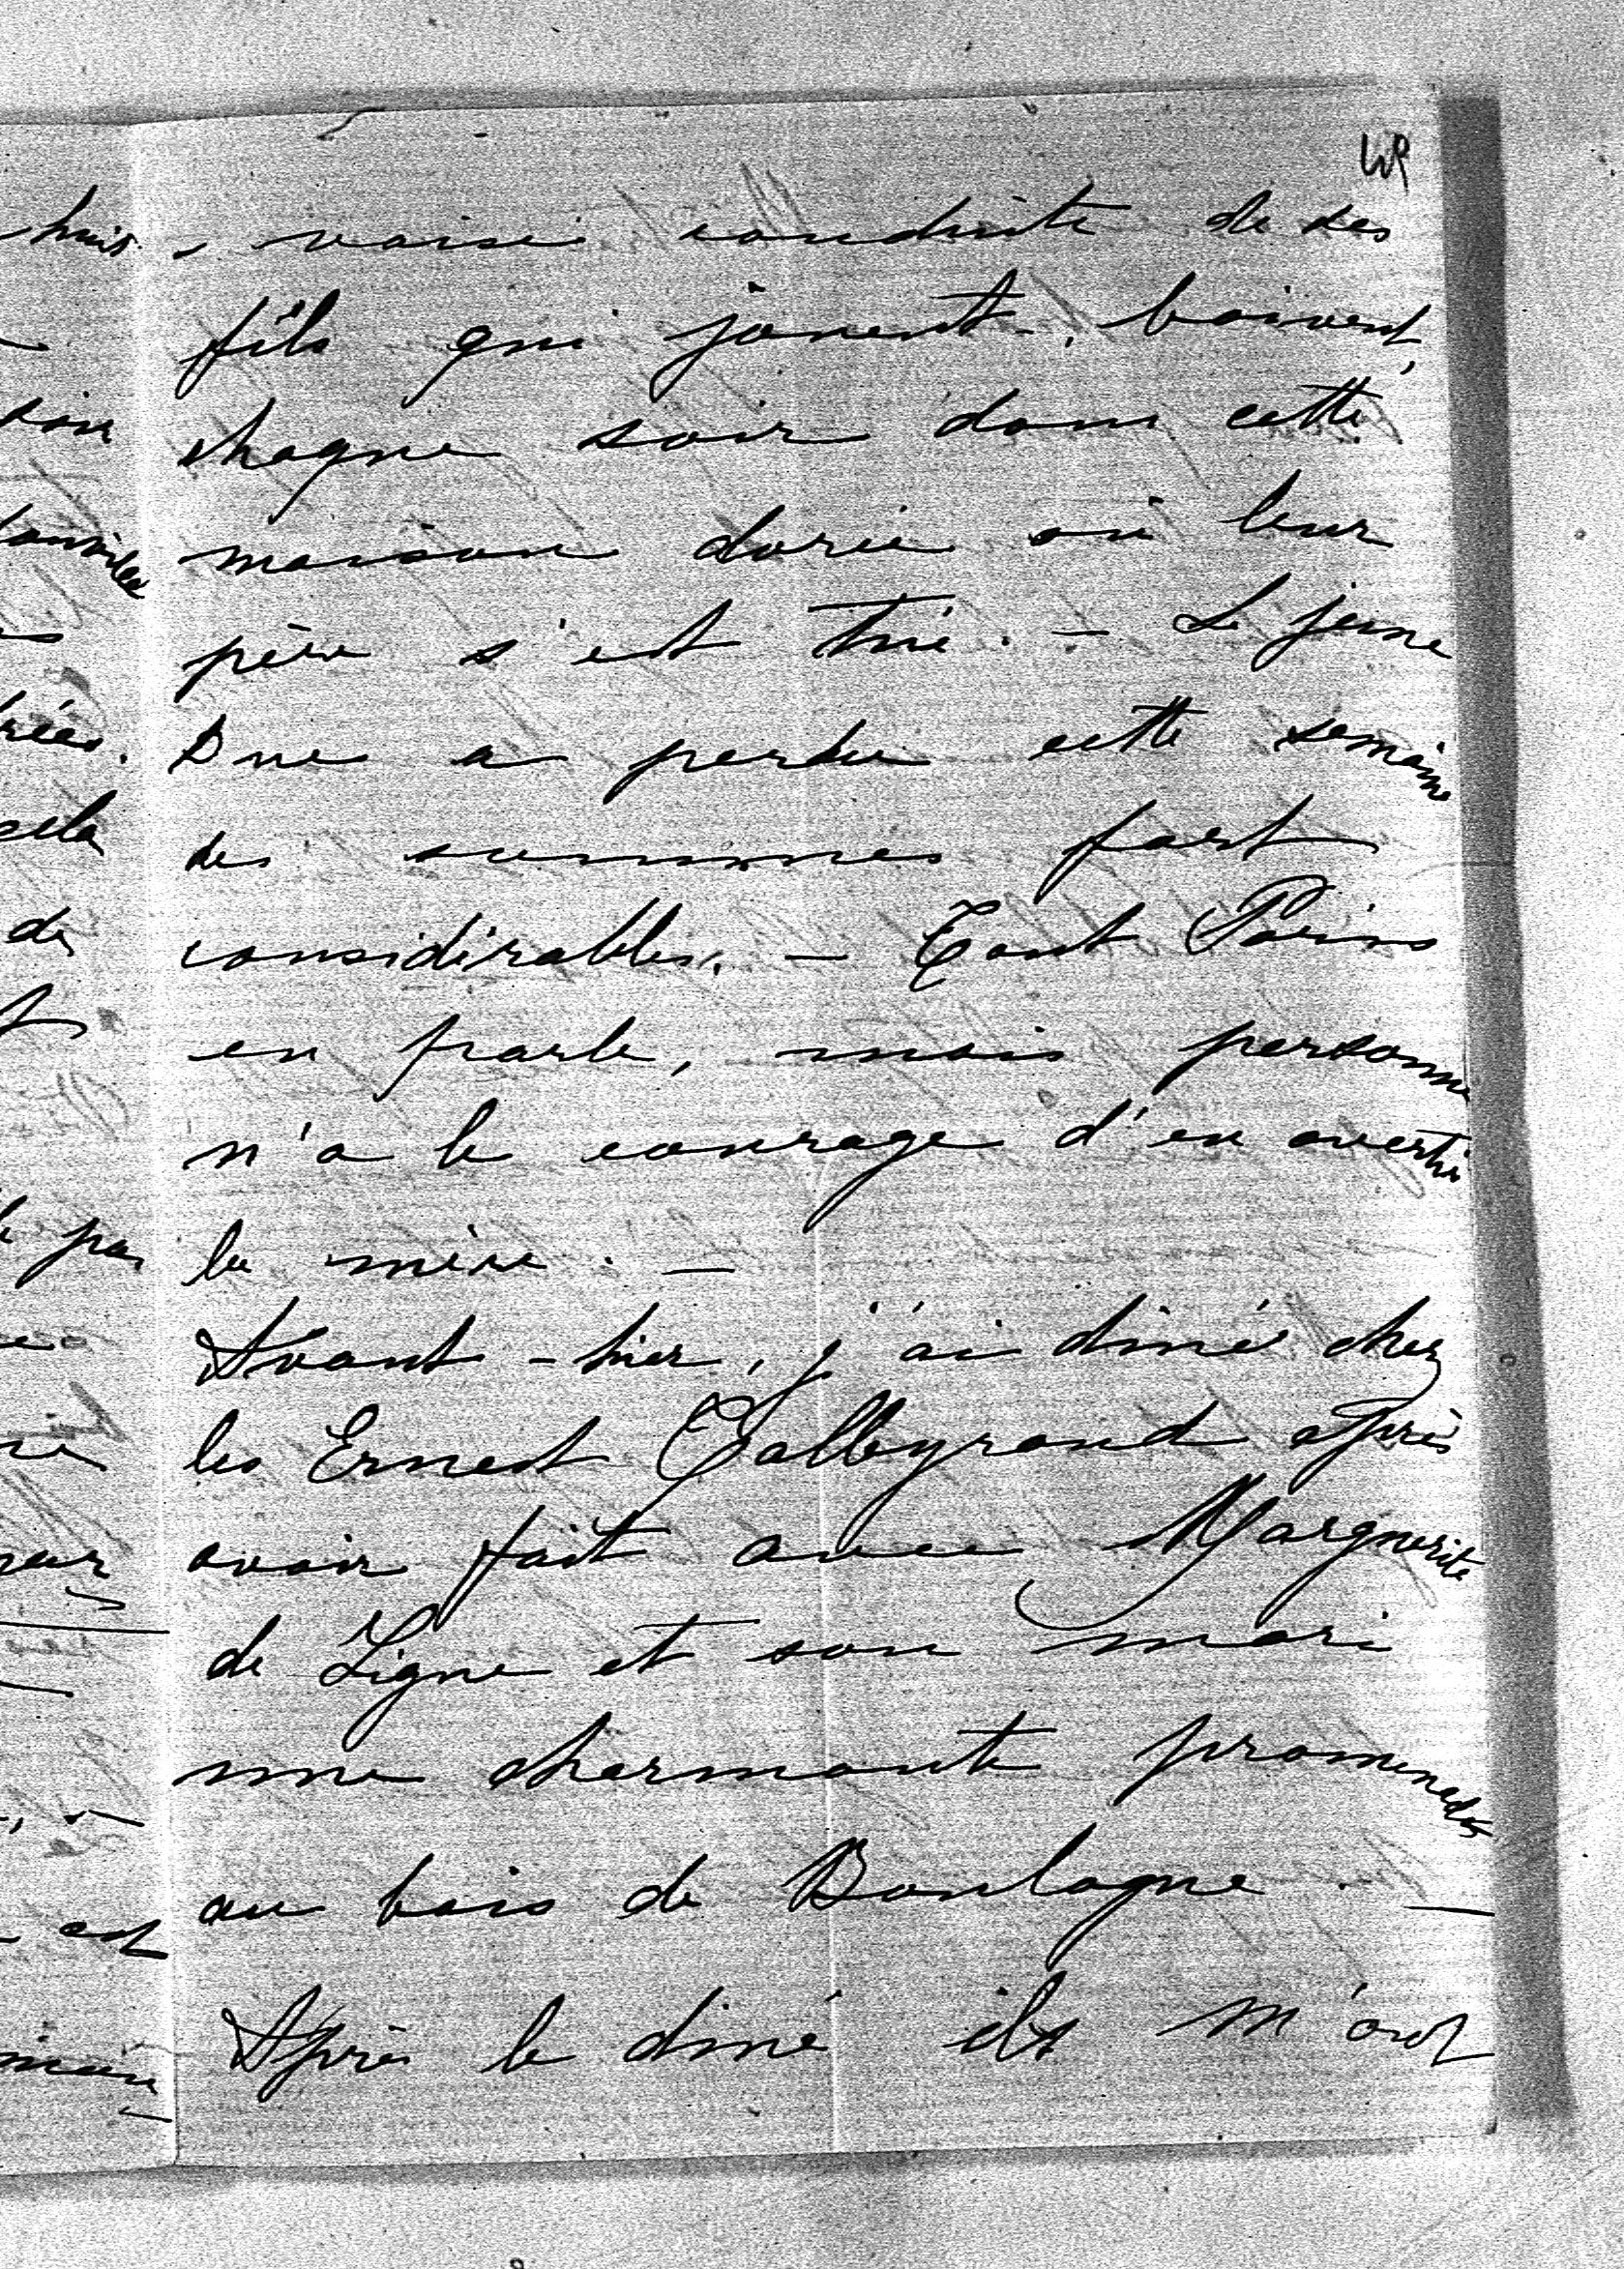 - vaise conduite de ses
fils qui jouent, boivent,
chaque soir dans cette
maison dorée où leur
père s'est tué. - Le jeune
Duc a perdu cette semaine
des sommes fort
considérables. - Tout Paris
en parle, mais personne
n'a le courage d'en avertir
la mère. -
Avant-hier, j'ai diné chez
les Ernest Talleyrand après
avoir fait avec Marguerite
de Ligne et son mari
une charmante promenade
au bois de Boulogne. -
Après le diné ils m'ont